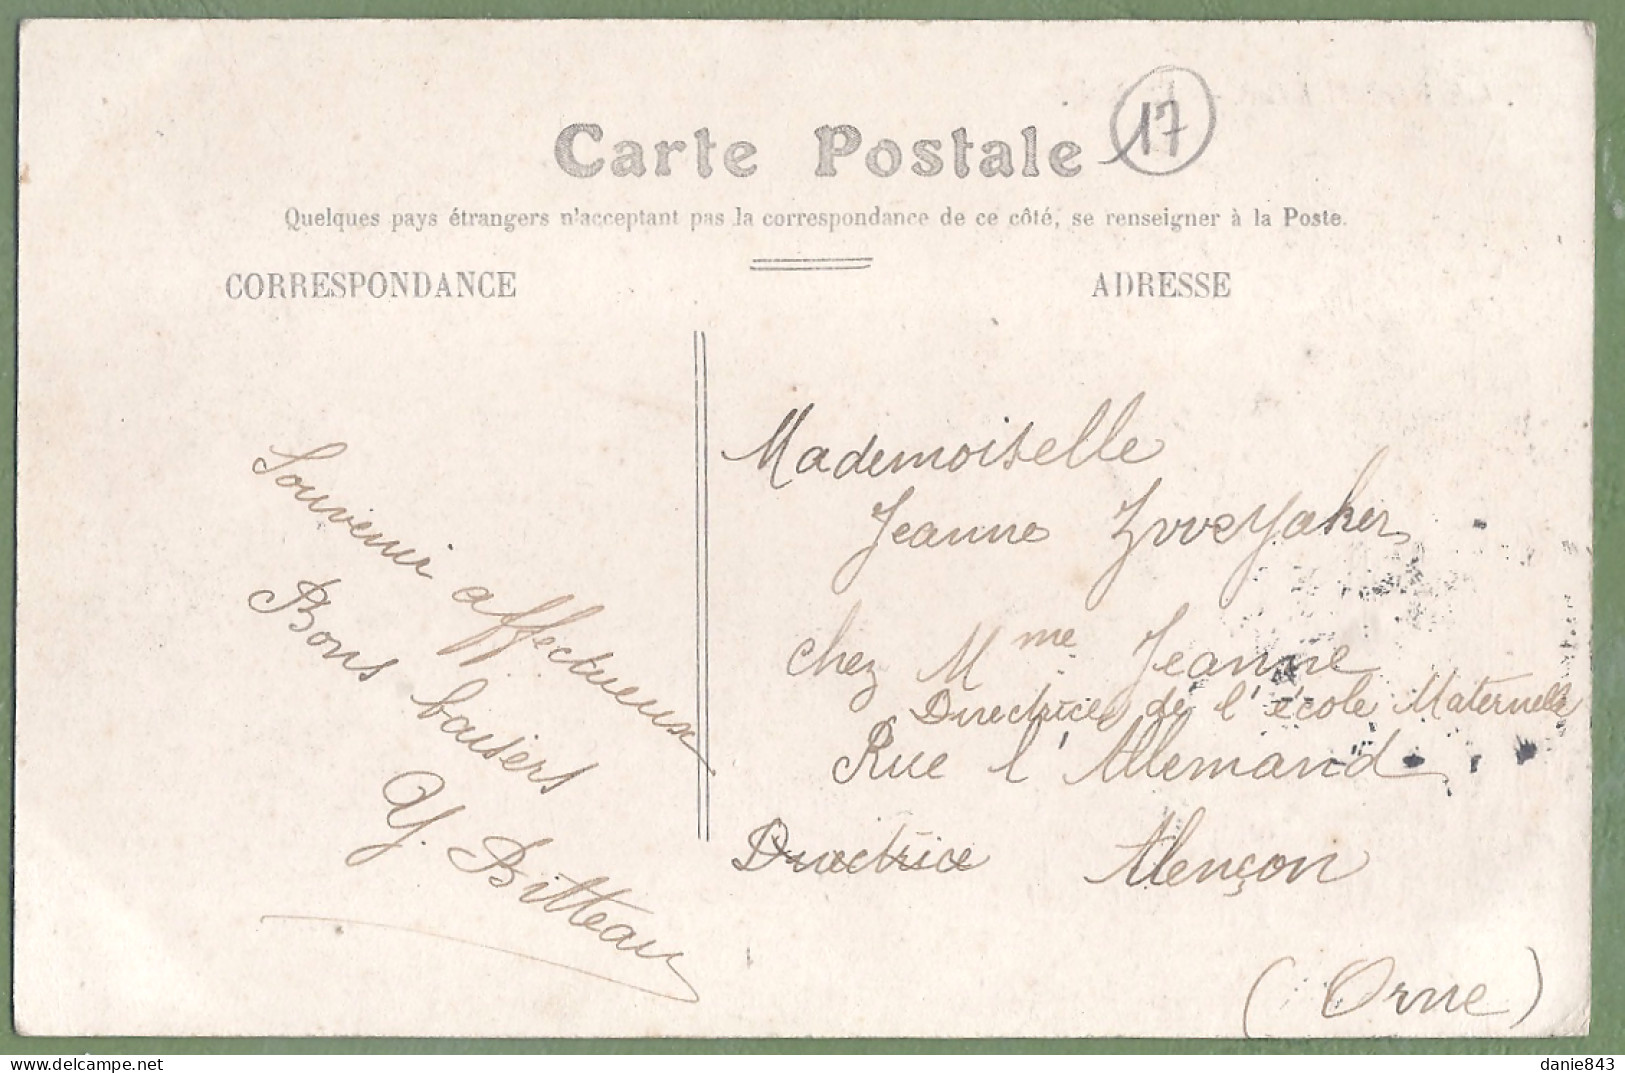 17
Carte Postale
Quelques pays étrangers n'acceptant pas la correspondance de ce côté, se renseigner à la Poste.
CORRESPONDANCE
ADRESSE
Souvenir affectueux
Bons baisers
Y. Bitteau
Mademoiselle
Jeanne
chez Mme Jeanne
Directrice de l'école Maternelle
Rue l'Allemand
Directrice Alençon
(Orne)
danie843